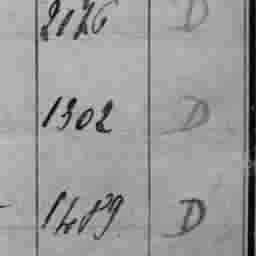 2126 D
1302 D
1489 D